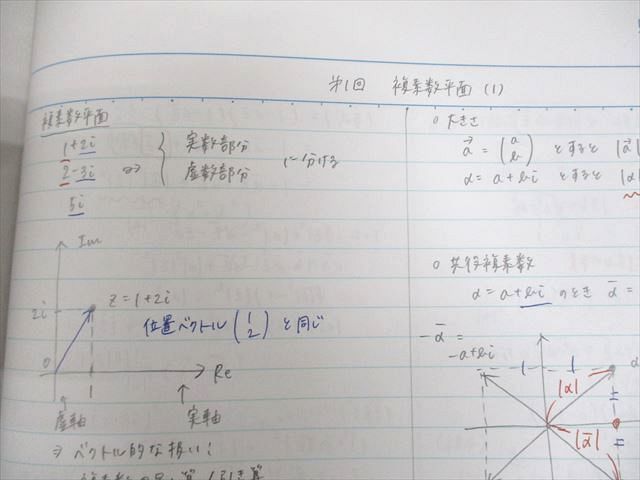 第1回 複素数平面 (1)
複素数平面
1+2i
2-3i ⇒ { 実数部分 虚数部分 に分ける
5i
Im
2i
z = 1+2i
位置ベクトル (1 2) と同じ
0
1
Re
虚軸
実軸
⇒ ベクトル的な扱い!
○ 大きさ
a→ = (a b) とすると |a→|
α = a+bi とすると |α|
○ 共役複素数
α = a+bi のとき ᾱ =
-ᾱ =
-a+bi
α
|α|
|ᾱ|